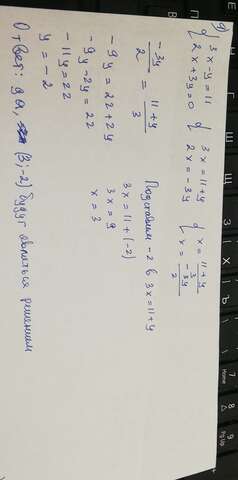 g)
{ 3x-y=11
2x+3y=0
{ 3x=11+y
2x=-3y
{ x=11+y/3
x=-3y/2
-3y/2 = 11+y/3
-9y=22+2y
-9y-2y=22
-11y=22
y=-2
Подставим -2 в 3x=11+y
3x=11+(-2)
3x=9
x=3
Ответ: да, (3;-2) будут являться решением
З Х Ъ
7 Home
8
9 PgUp